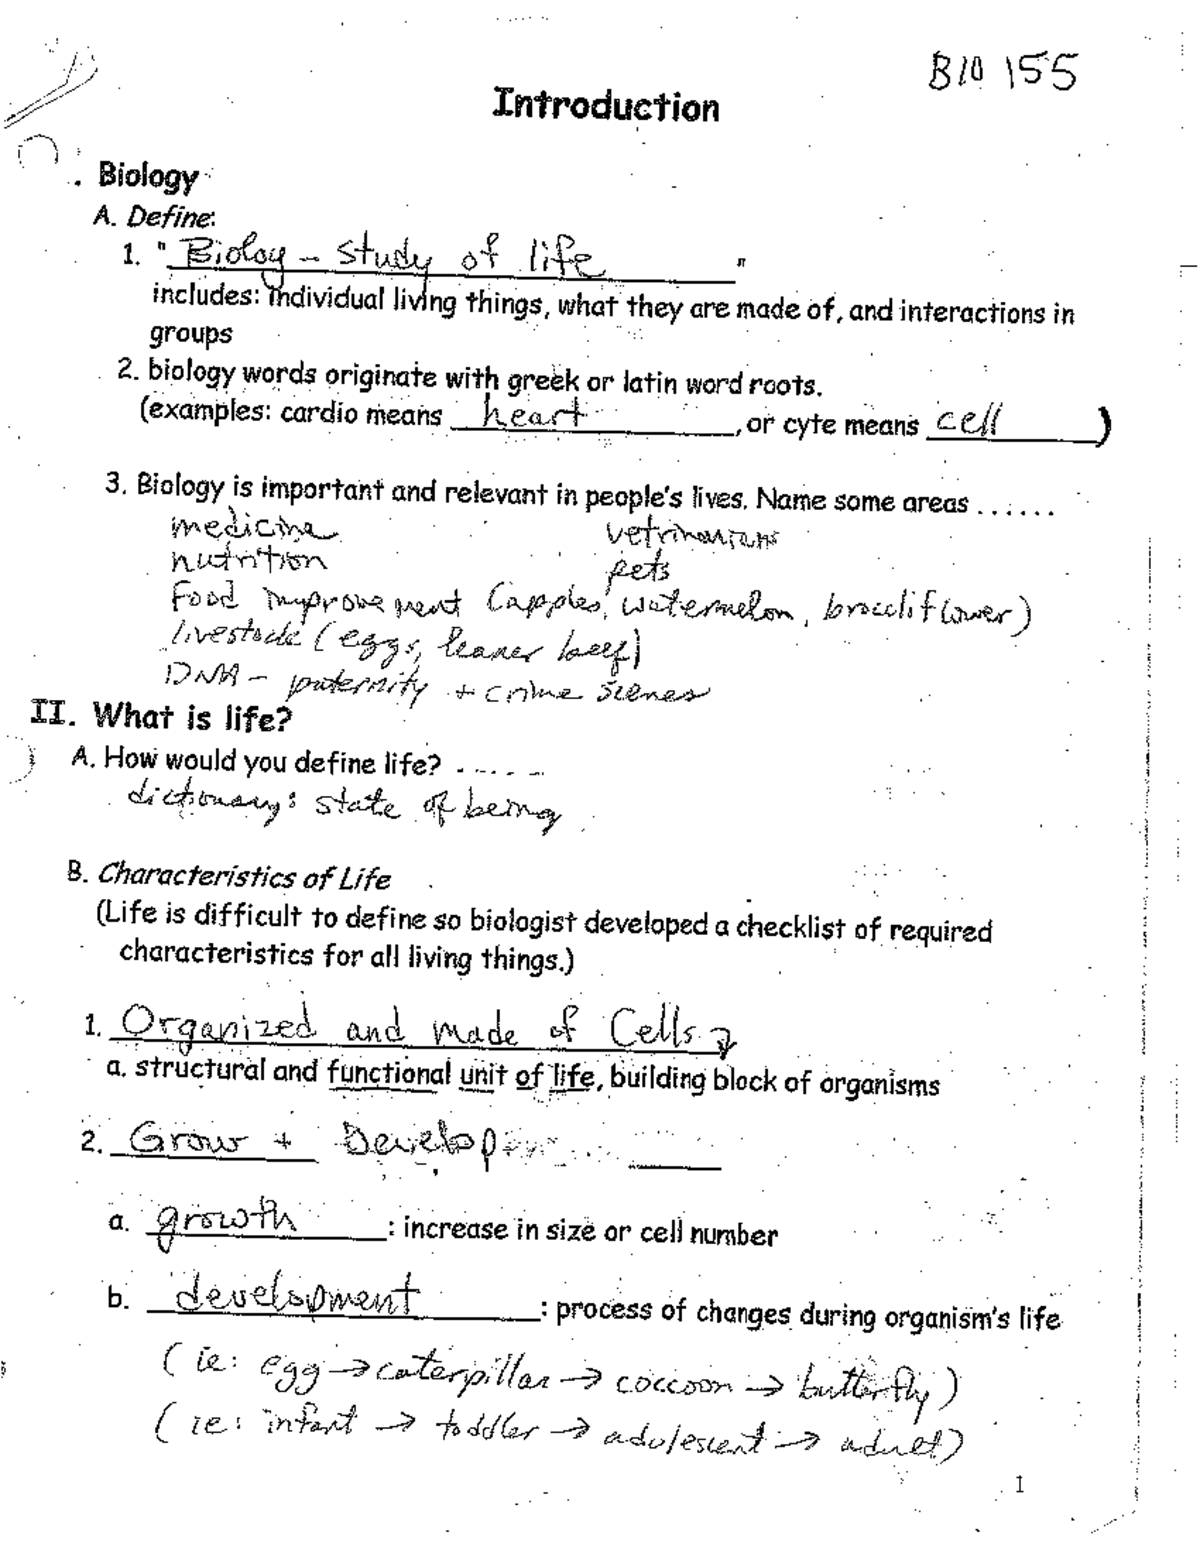 BIO 155
Introduction
. Biology
A. Define:
1. " Bioloy - study of life "
includes: individual living things, what they are made of, and interactions in
groups
2. biology words originate with greek or latin word roots.
(examples: cardio means heart, or cyte means cell)
3. Biology is important and relevant in people's lives. Name some areas ......
medicine vetrinarians
nutrition pets
Food improvement (apples, watermelon, brocoliflower)
livestock (eggs, leaner beef)
DNA - paternity + crime scenes
II. What is life?
A. How would you define life? ......
dictionary: state of being
B. Characteristics of Life
(Life is difficult to define so biologist developed a checklist of required
characteristics for all living things.)
1. Organized and made of Cells
a. structural and functional unit of life, building block of organisms
2. Grow + Develop
a. growth : increase in size or cell number
b. development : process of changes during organism's life
(ie: egg → caterpillar → coccoon → butterfly)
(ie: infant → toddler → adolescent → adult)
1